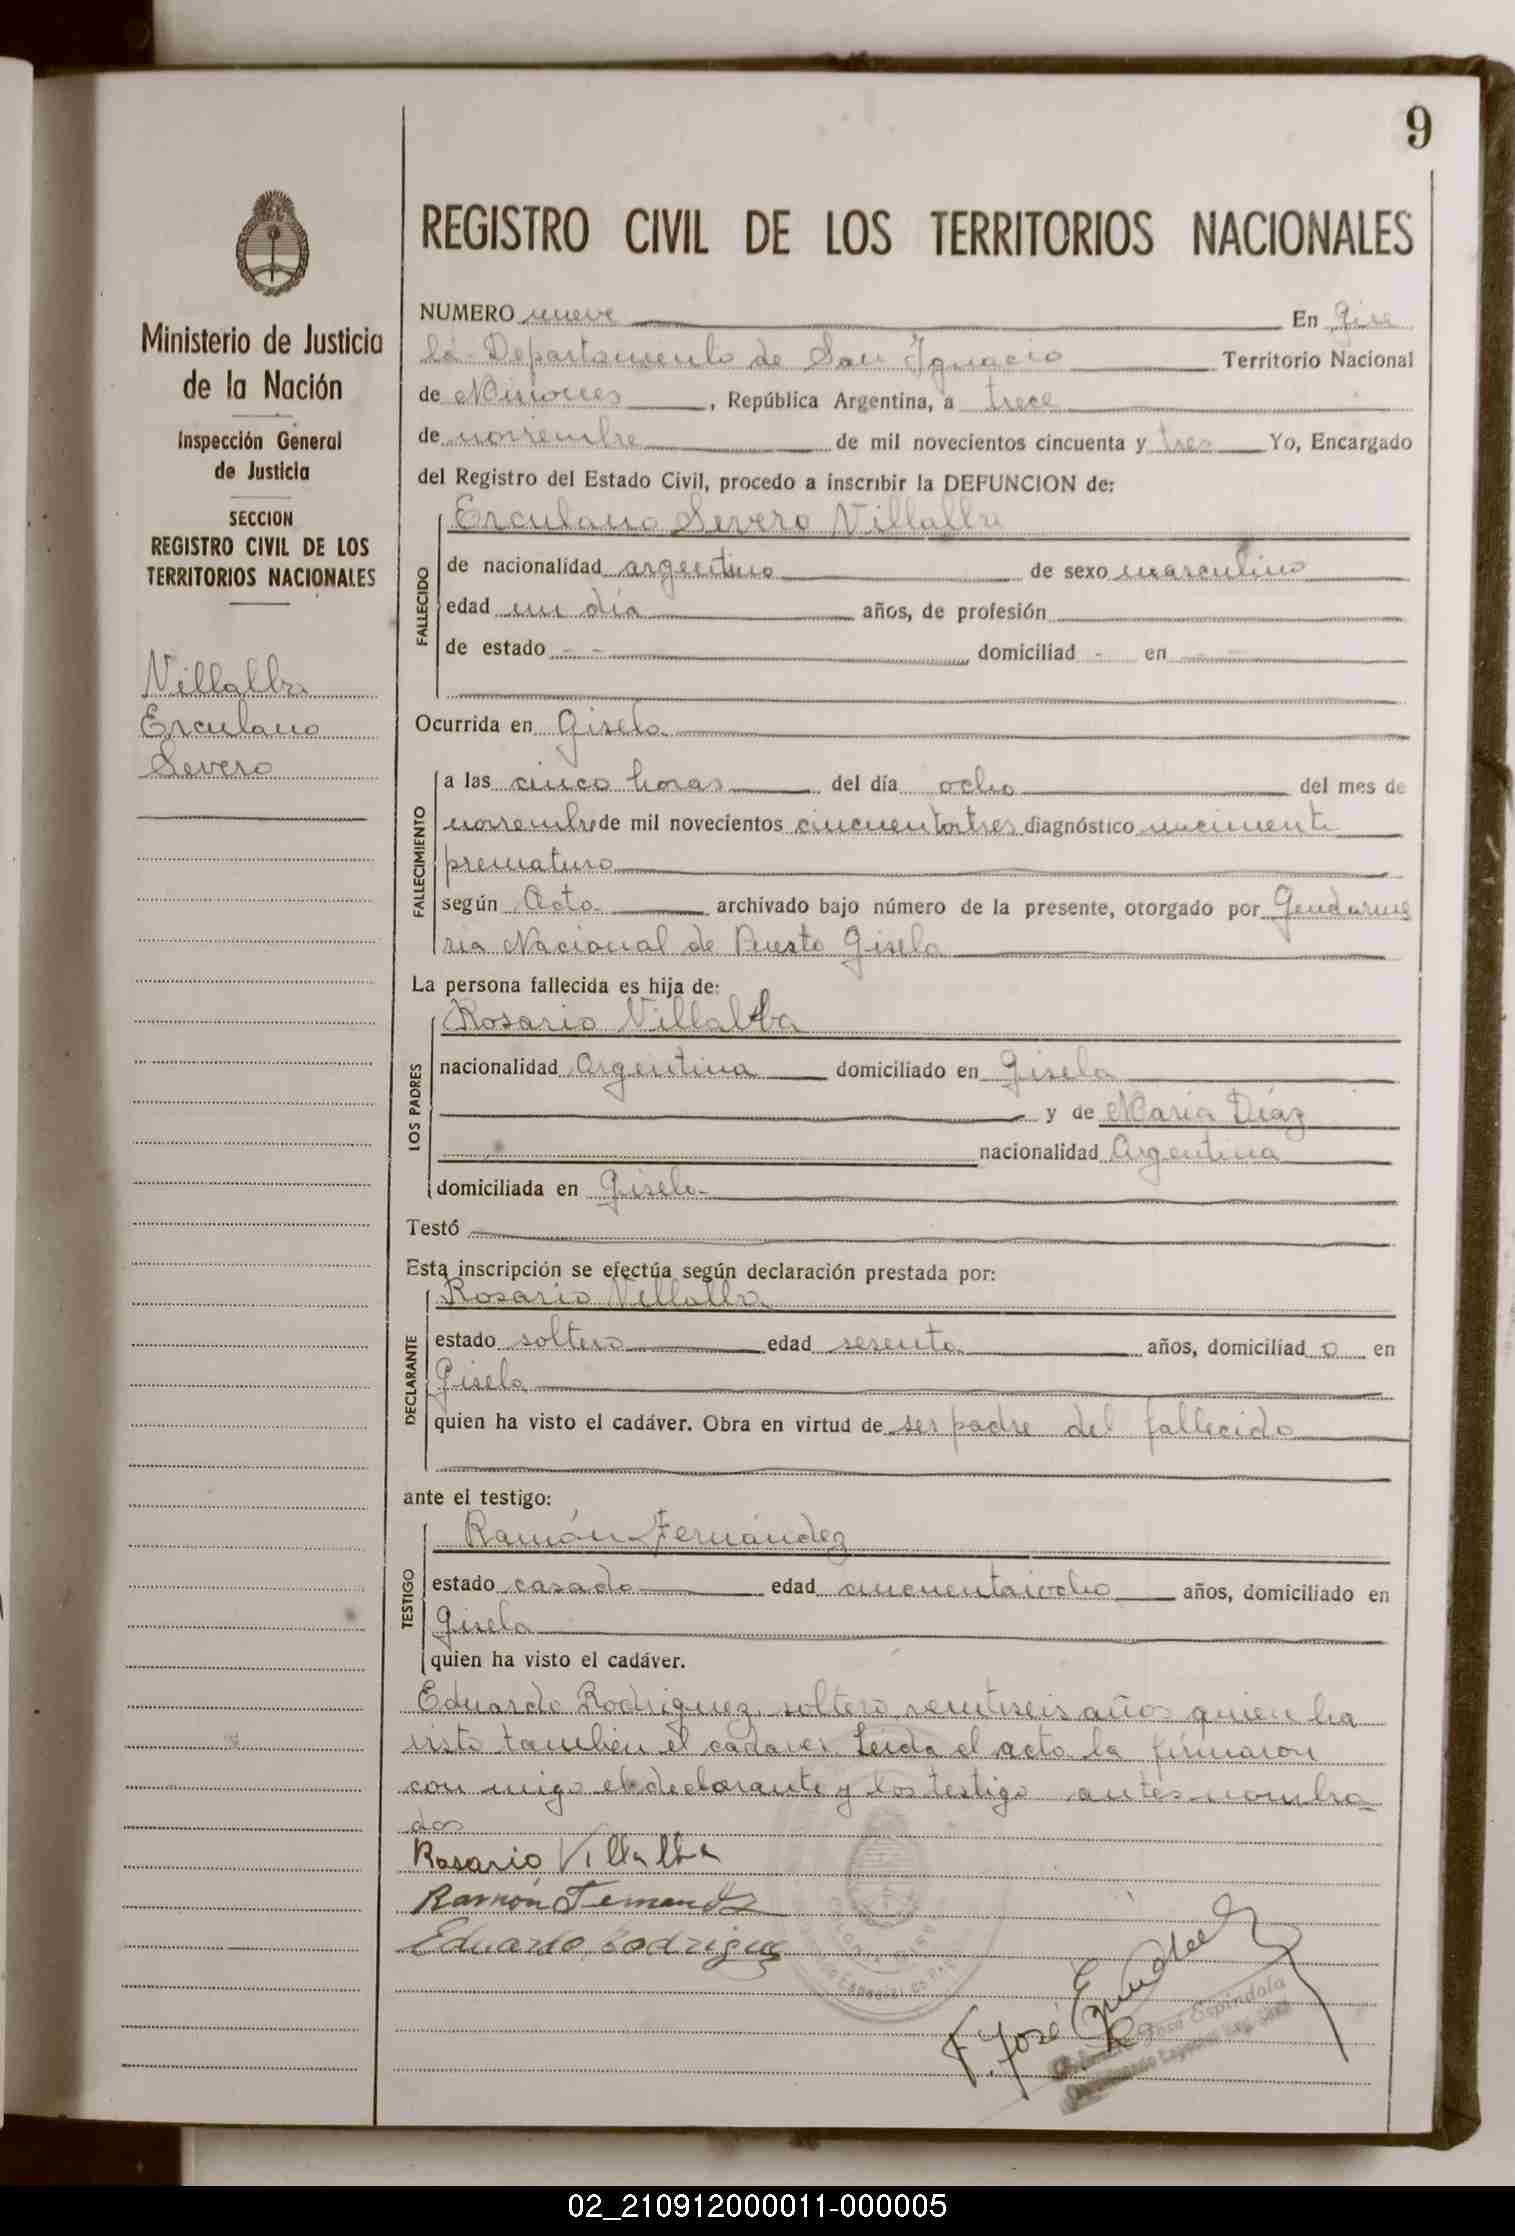 9
REGISTRO CIVIL DE LOS TERRITORIOS NACIONALES
Ministerio de Justicia
de la Nación
Inspección General
de Justicia
SECCION
REGISTRO CIVIL DE LOS
TERRITORIOS NACIONALES
Villalba
Erculano
Severo
NUMERO nueve En Gise
la Departamento de San Ignacio Territorio Nacional
de Misiones, República Argentina, a trece
de noviembre de mil novecientos cincuenta y tres Yo, Encargado
del Registro del Estado Civil, procedo a inscribir la DEFUNCION de:
Erculano Severo Villalba
FALLECIDO
de nacionalidad argentino de sexo masculino
edad un día años, de profesión
de estado - - domiciliad - en
Ocurrida en Gisela
FALLECIMIENTO
a las cinco horas del día ocho del mes de
noviembre de mil novecientos cincuentaitres diagnóstico nacimiento
prematuro
según Acta archivado bajo número de la presente, otorgado por Gendarme
ria Nacional de Puerto Gisela
La persona fallecida es hija de:
LOS PADRES
Rosario Villalba
nacionalidad Argentina domiciliado en Gisela
y de María Díaz
nacionalidad Argentina
domiciliada en Gisela
Testó
Esta inscripción se efectúa según declaración prestada por:
DECLARANTE
Rosario Villalba
estado soltero edad sesenta años, domiciliad o en
Gisela
quien ha visto el cadáver. Obra en virtud de ser padre del fallecido
ante el testigo:
TESTIGO
Ramón Fernández
estado casado edad cincuentaiocho años, domiciliado en
Gisela
quien ha visto el cadáver.
Eduardo Rodriguez, soltero, veintiseis años quien ha
visto también el cadaver. Leida el acta la firmaron
con migo el declarante y los testigo antes nombra
dos
Rosario Villalba
Ramón Fernandez
Eduardo Rodriguez
F. José Espindola
José Espíndola
02_210912000011-000005